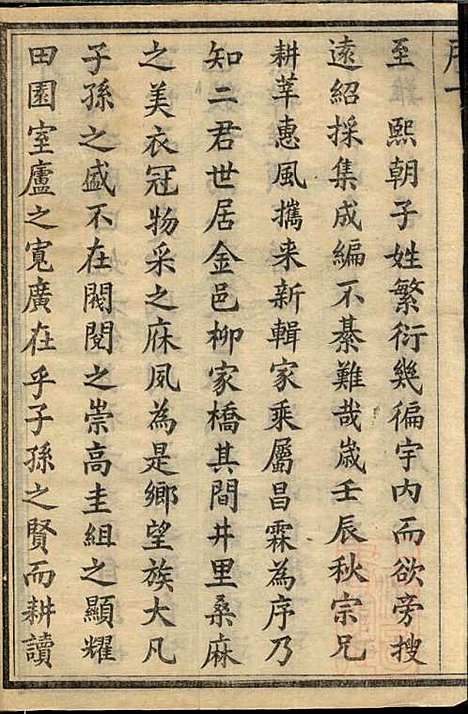 至　熙朝子姓繁衍幾徧宇內而欲旁搜
遠紹採集成編不綦難哉歲壬辰秋宗兄
耕莘惠風攜来新輯家乘屬昌霖為序乃
知二君世居金邑柳家橋其間井里桑麻
之美衣冠物采之庥夙為是鄉望族大凡
子孫之盛不在閥閱之崇高圭組之顯耀
田園室廬之寬廣在乎子孫之賢而耕讀